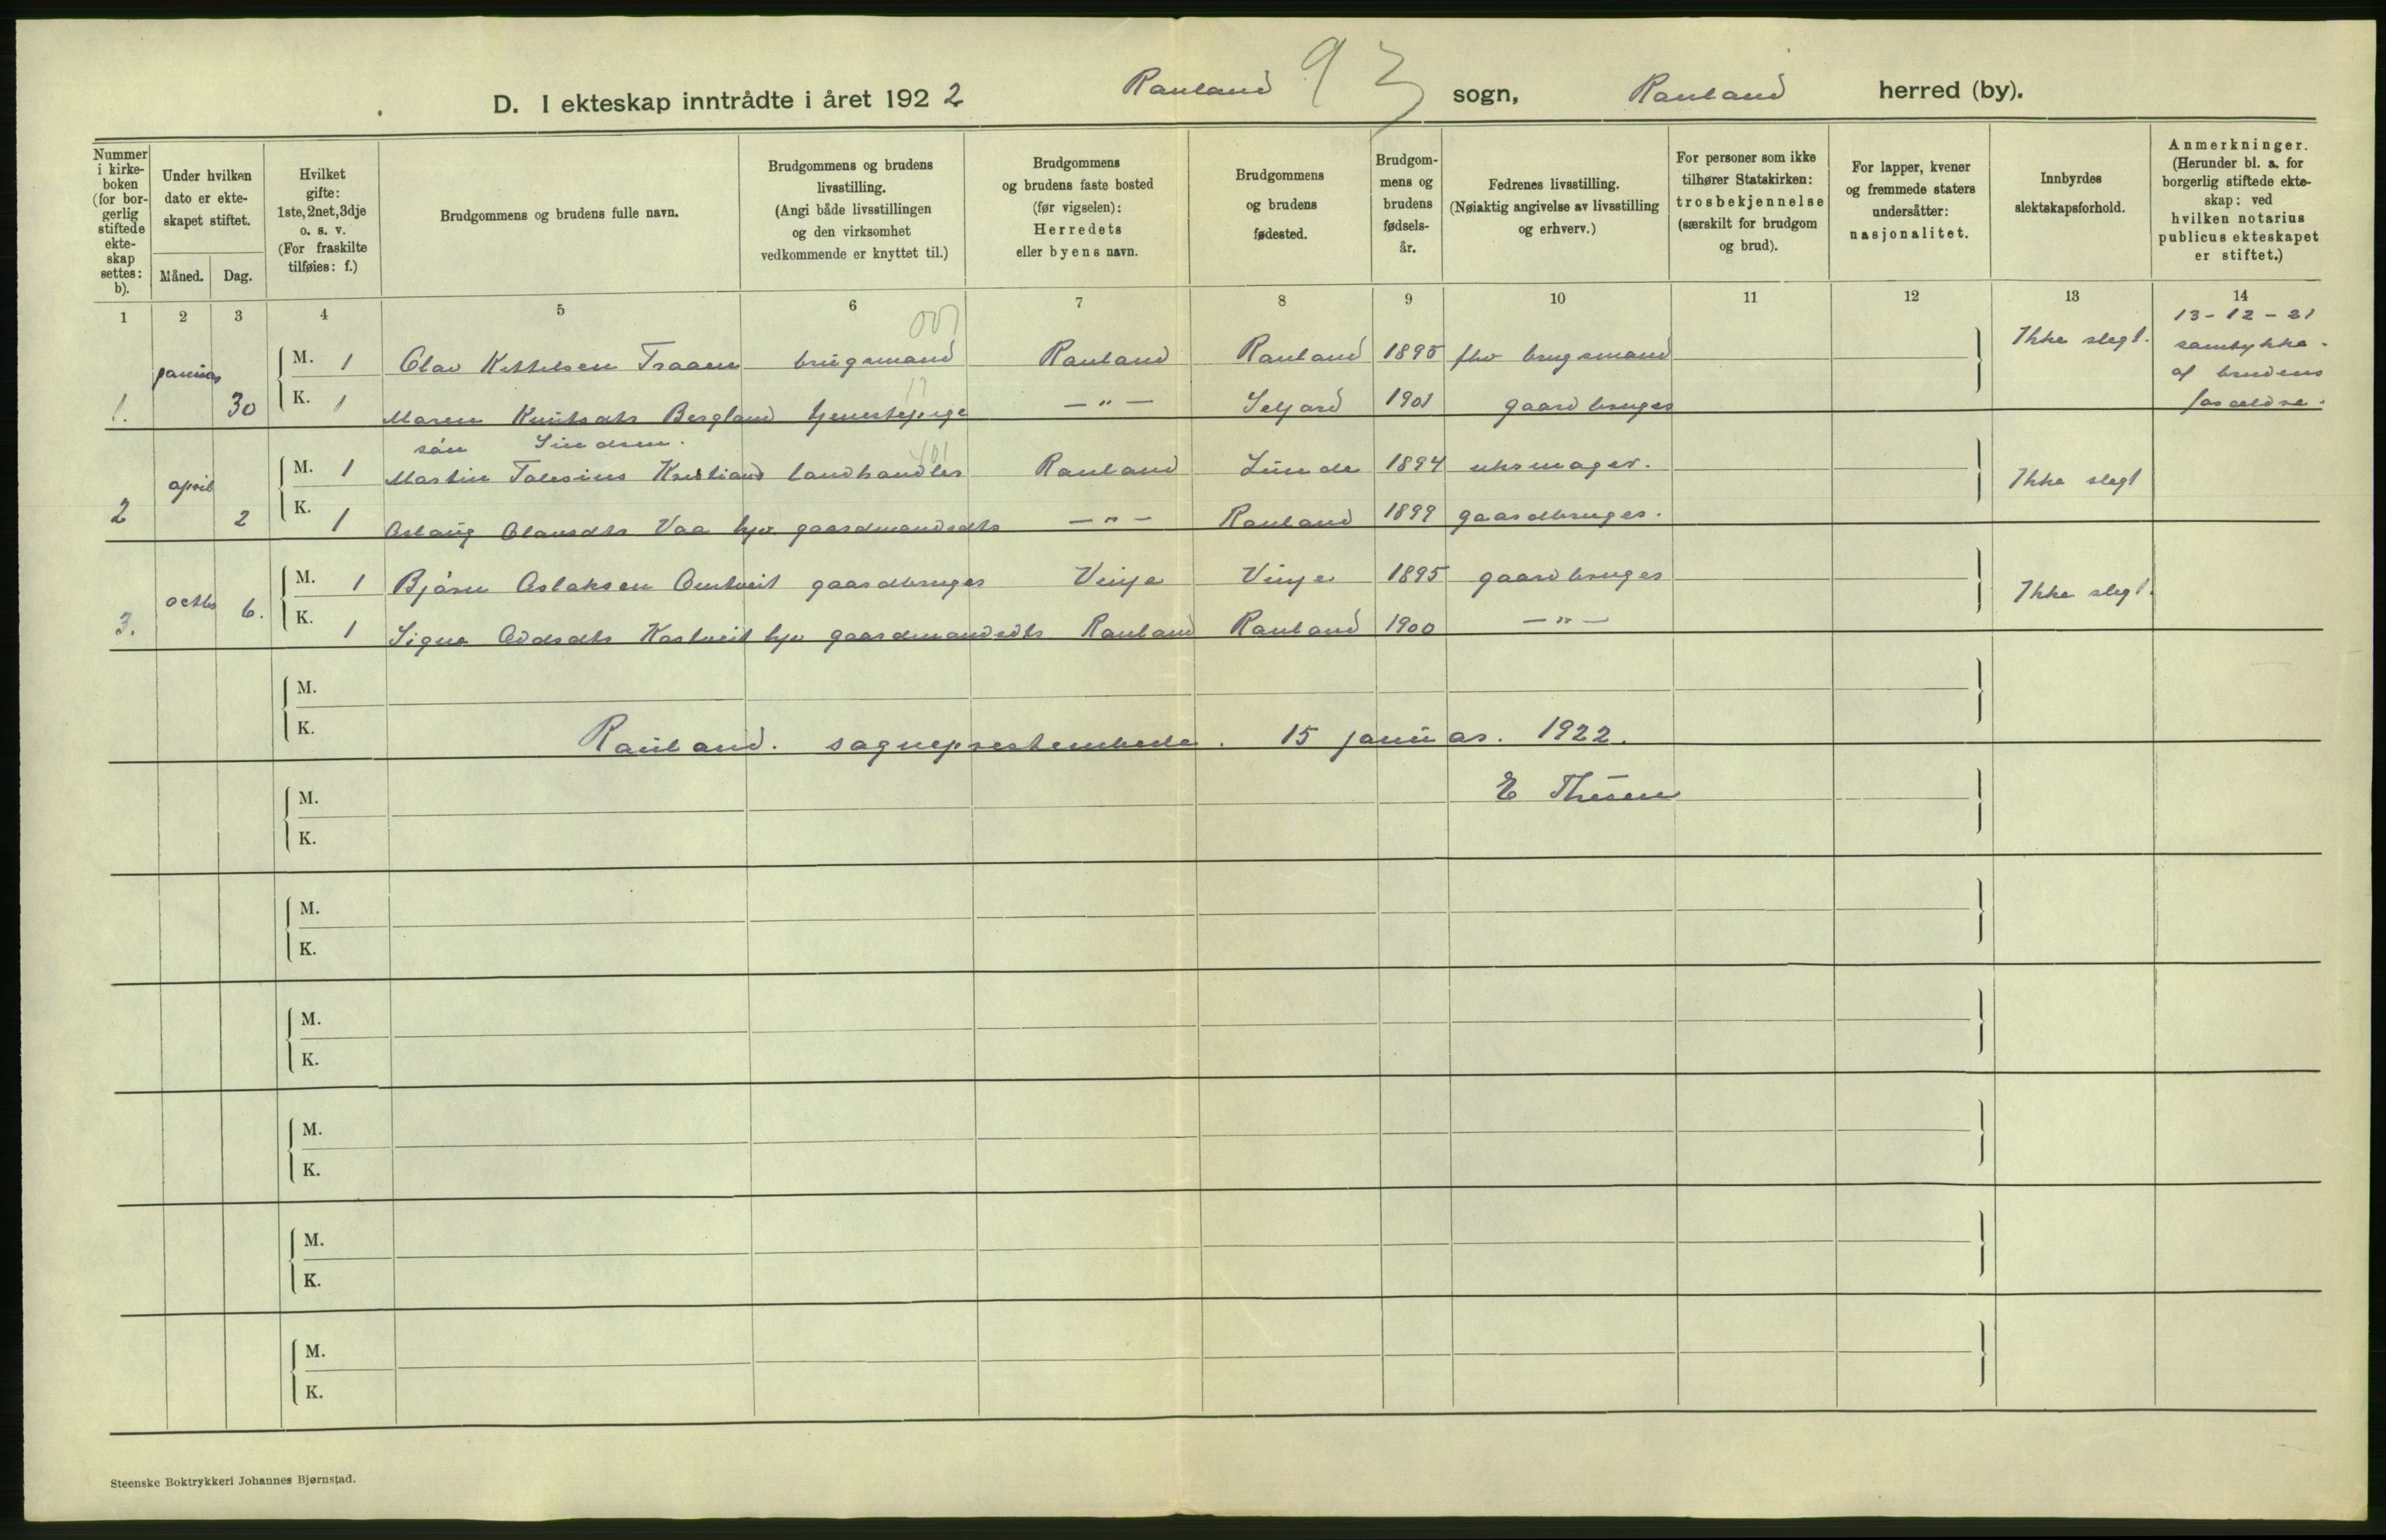 D. I ekteskap inntrådte i året 1922 Rauland 93 sogn, Rauland herred (by).
Nummer i kirkeboken (for borgerlig stiftede ekteskap settes: b).
Under hvilken dato er ekteskapet stiftet.
Måned. Dag.
Hvilket gifte: 1ste, 2net, 3dje o. s. v. (For fraskilte tilføies: f.)
Brudgommens og brudens fulle navn.
Brudgommens og brudens livsstilling. (Angi både livsstillingen og den virksomhet vedkommende er knyttet til.)
Brudgommens og brudens faste bosted (før vigselen): Herredets eller byens navn.
Brudgommens og brudens fødested.
Brudgommens og brudens fødselsår.
Fedrenes livsstilling. (Nøiaktig angivelse av livsstilling og erhverv.)
For personer som ikke tilhører Statskirken: trosbekjennelse (særskilt for brudgom og brud).
For lapper, kvener og fremmede staters undersåtter: nasjonalitet.
Innbyrdes slektskapsforhold.
Anmerkninger. (Herunder bl. a. for borgerlig stiftede ekteskap: ved hvilken notarius publicus ekteskapet er stiftet.)
1 2 3 4 5 6 7 8 9 10 11 12 13 14
13-12-21
januar M. 1 Olav Kettelsen Traaen brugsmand Rauland Rauland 1895 fhv brugsmand Ikke slegt. samtykke
af brudens
1. 30 K. 1 Maren Knutsdtr Bergland tjenestepige —"— Seljord 1901 gaardbruger forældre.
søn Simdsen. 101
april M. 1 Martin Talesius Kristian landhandler Rauland Lunde 1894 urmager. Ikke slegt
2 2 K. 1 Aslaug Olavsdtr Vaa hjv. gaardmandsdtr —"— Rauland 1899 gaardbruger.
octbr 6. M. 1 Bjørn Aslaksen Omtveit gaardbruger Vinje Vinje 1895 gaardbruger Ikke slegt.
3. K. 1 Signe Oddsdtr Kostveit hjv gaardmandsdtr Rauland Rauland 1900 —"—
M.
K.
Rauland. sogneprestembede. 15 januar. 1922.
M. E Thesen
K.
M.
K.
M.
K.
M.
K.
M.
K.
M.
K.
Steenske Boktrykkeri Johannes Bjørnstad.